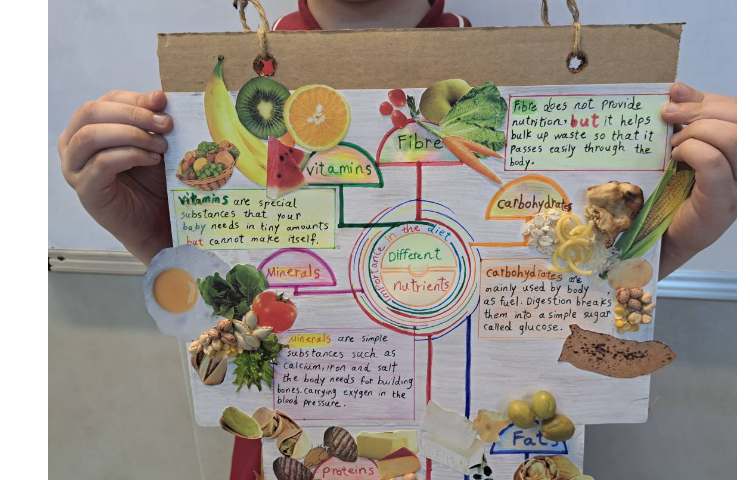 Vitamins
Fibre
Fibre does not provide
nutrition, but it helps
bulk up waste so that it
passes easily through the
body.
Vitamins are special
substances that your
baby needs in tiny amounts
but cannot make itself.
Carbohydrates
importance in the diet
Different
nutrients
Minerals
Carbohydrates are
mainly used by body
as fuel. Digestion breaks
them into a simple sugar
called glucose.
Minerals are simple
substances such as
calcium, iron and salt
the body needs for building
bones. carrying oxygen in the
blood pressure.
Proteins
Fats